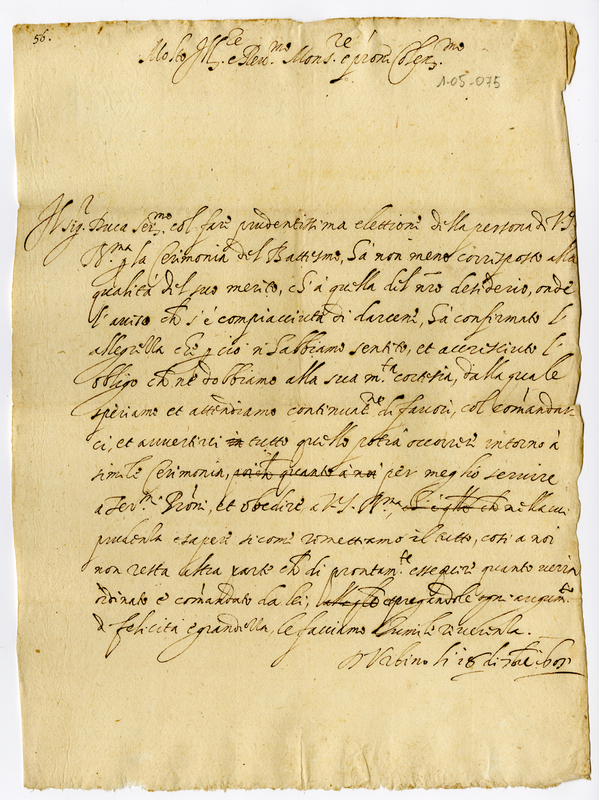 56.
Molto Ill.re e Rev.mo Mons.re e pron Oss.mo
1-05-075
Il sig.r Duca Ser.mo col fare prudentissima elettione della persona di V.S.
R.ma p la Cerimonia del Battesmo, hà non meno corrisposto alla
qualità del suo merito, ch'à quella del nro desiderio, onde
l'aviso ch s'è compiacciuta di darcene, hà confirmato l'
allegrezza che p ciò n'habbiamo sentito, et accresciuto l'
obligo ch ne dobbiamo alla sua m.ta cortesia, dalla quale
speriamo et attendiamo continuat.ne di favori, col comandar
ci, et avvertirci in tutto quello potrà occorrere intorno à
simile Cerimonia, poich quanto à noi per meglio servire
a Ser.mi Proni, et obedire a V.S. R.ma, ch nella cui
prudenza e sapere si come rimettiamo il tutto, così a noi
non resta altra parte ch di prontam.te esseguire quanto verrà
ordinato e comandato da lei, e pregandole ogni augum.to
di felicità e grandezza, le facciamo humile riverenza.
D'Urbino li 28 di 7bre 1605